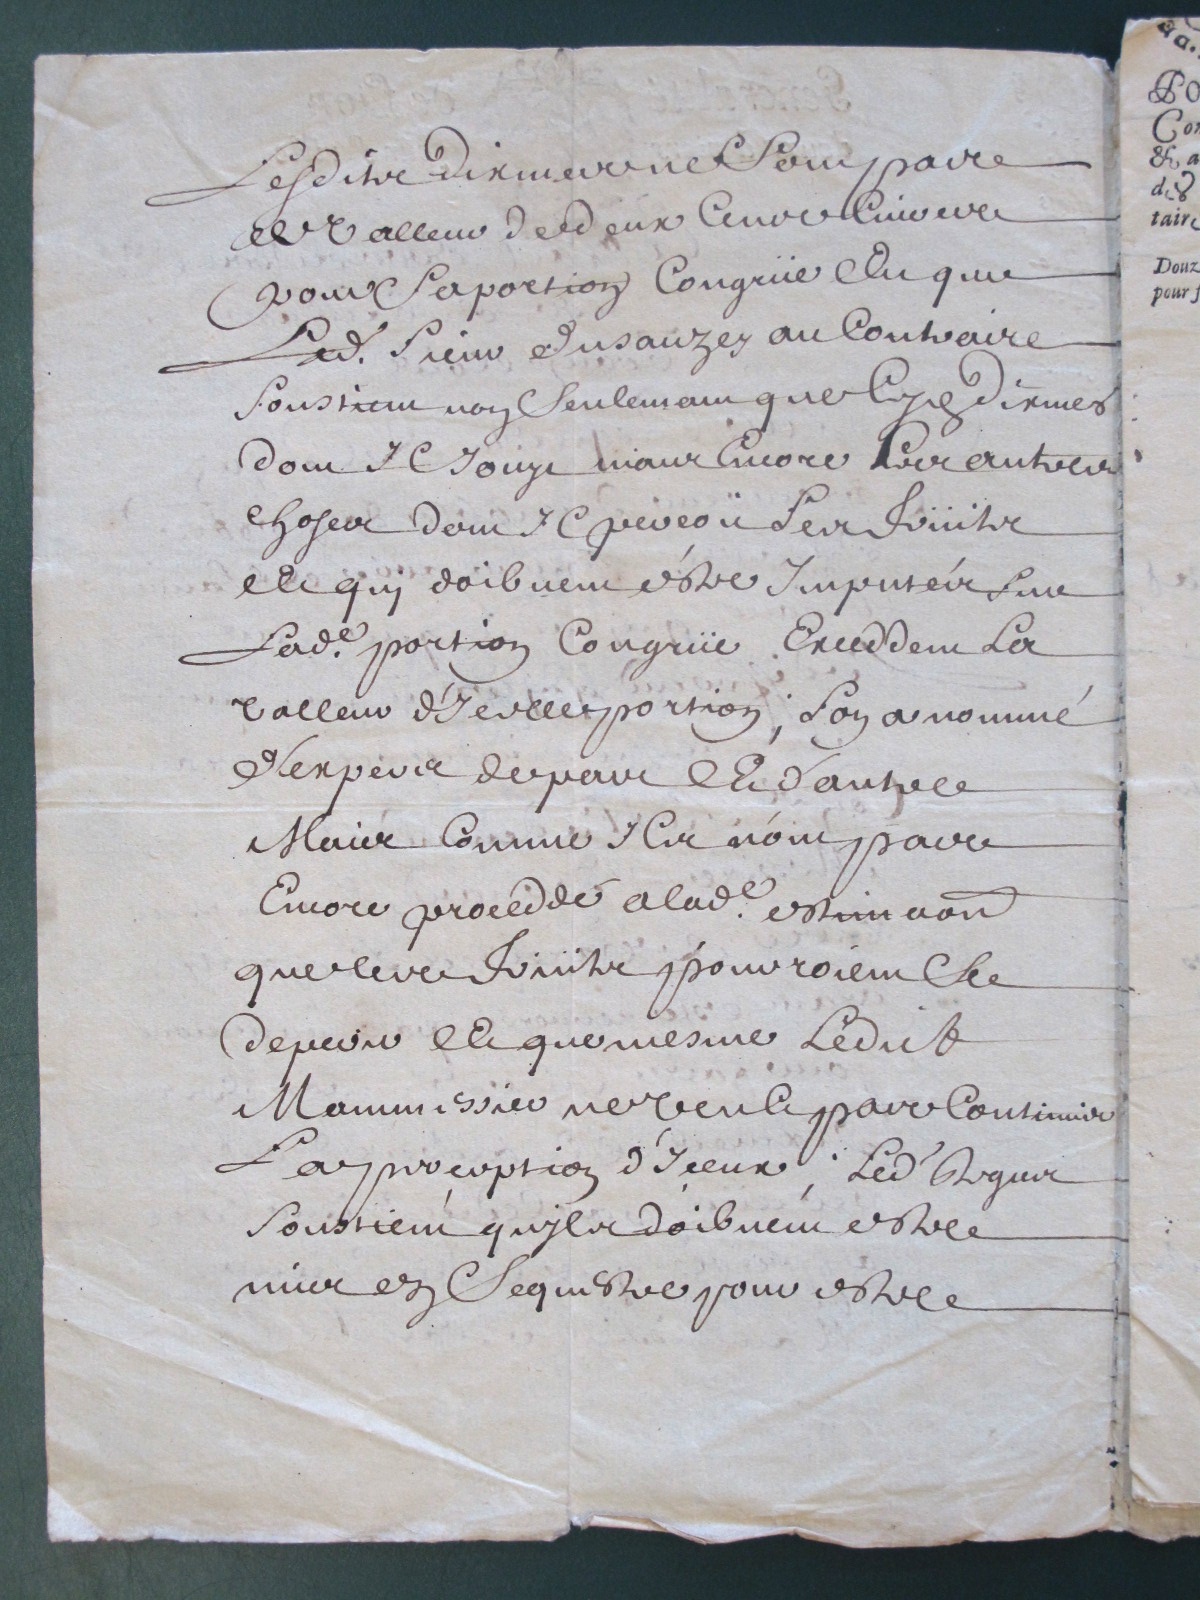 Lesdits dixmes ne sont pas
de valleur de deux cents livres
pour sa portion Congrüe Et que
Led. sieur au Contraire
soustient non seulement que les dixmes
dont Il Jouyt mais Encore les autres
choses dont Il perçoit les fruits
et quy doibuent estre Imputés sur
Lade. portion Congrüe Exceddent La
valleur d'Icelle portion, Lon a nommé
d'expers de part Et d'autre
Mais Comme Ils n'ont pas
Encore proceddé a lade. estimaon
que les fruits pourroient se
deperir Et que mesme Ledict
ne veut pas Continuer
La perception d'Iceux, Led'
soustient quyls doibuent estre
mis en sequestre pour estre
PO
Con
& a
des
taire
Douz
pour f